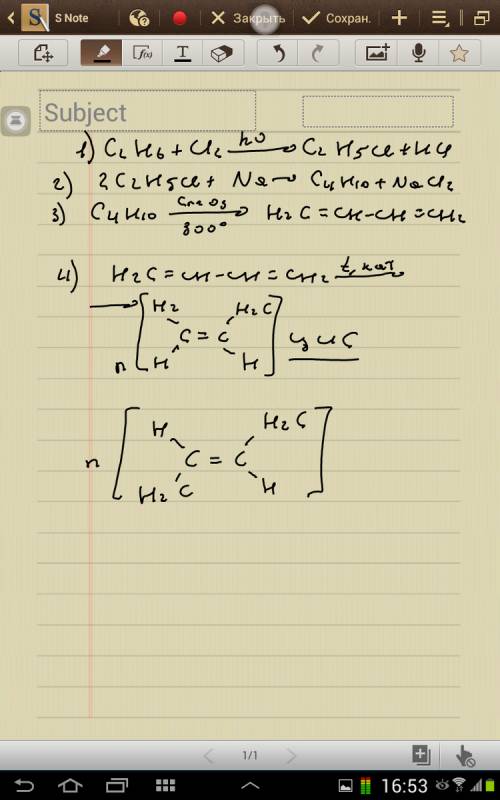 S Note
Закрыть
Сохран.
f(x)
T
Subject
1) C2H6 + Cl2 hν→ C2H5Cl + HCl
2) 2C2H5Cl + Na → C4H10 + NaCl2
3) C4H10 Cr2O3 300° → H2C = CH-CH = CH2
4) H2C = CH-CH = CH2 t, кат →
→ n [ H2 H2C
C = C цис
H H ]
n [ H H2C
C = C
H2C H ]
1/1
16:53